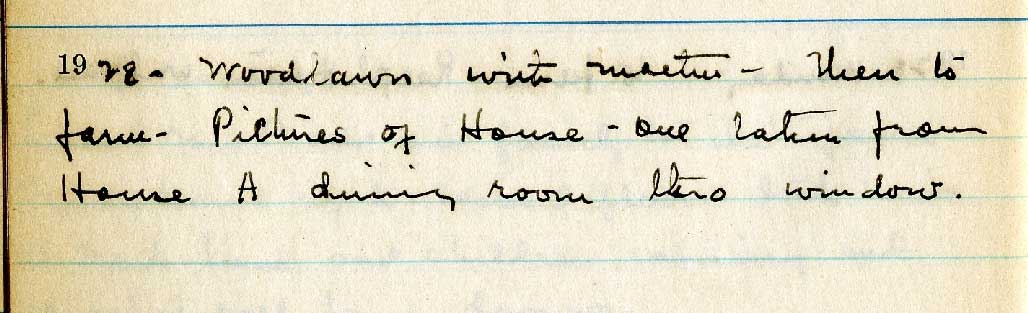 1928 - Woodlawn with mother - then to
farm - Pictures of House - one taken from
House A dining room thro window.